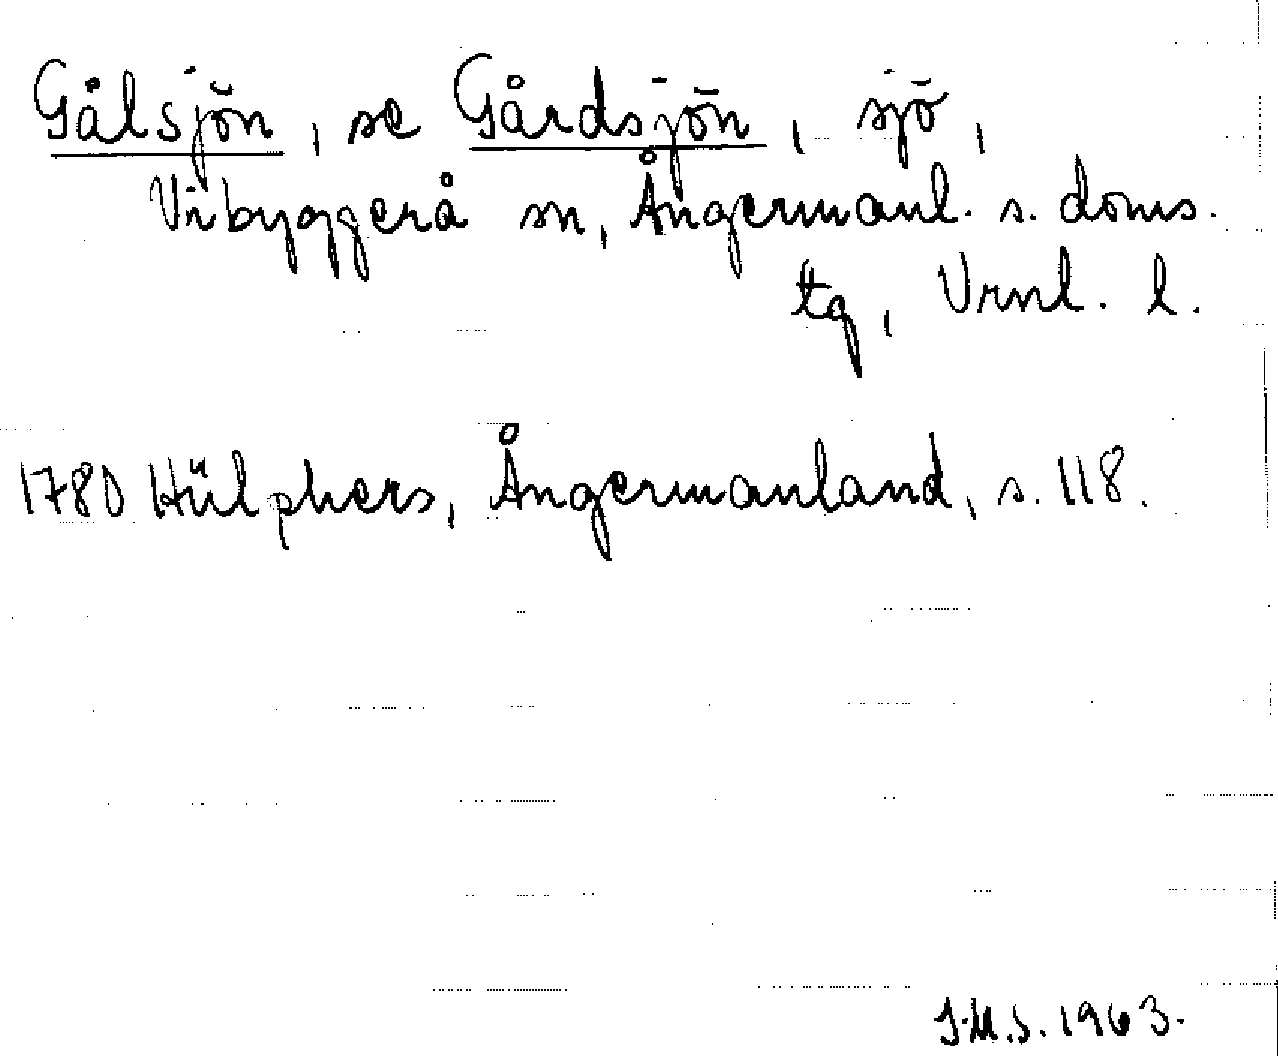 Gålsjön, se Gårdsjön, sjö,
Vibyggerå sn, Ångermanl. s. doms.
tg, Vrnl. l.
1780 Hülphers, Ångermanland, s. 118.
J.M.S. 1963.